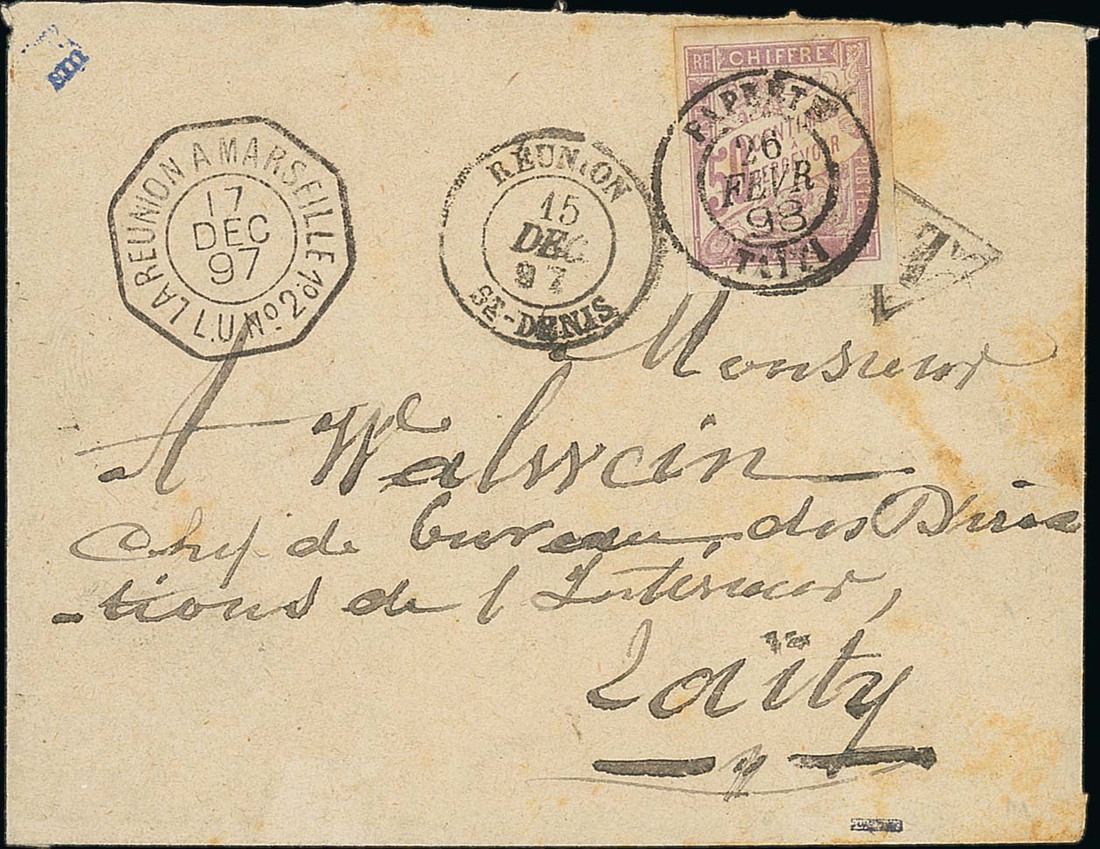 LA REUNION A MARSEILLE L.U. No. 2
17
DEC
97
REUNION
15
DEC
97
ST-DENIS
RF CHIFFRE
POSTE
50
CENTIMES
A
PERCEVOIR
PAPEETE
26
FEVR
98
TAITI
T
Monsieur
A Walwein
Chef de bureau des Direc
-tions de l'Intérieur,
Taïty